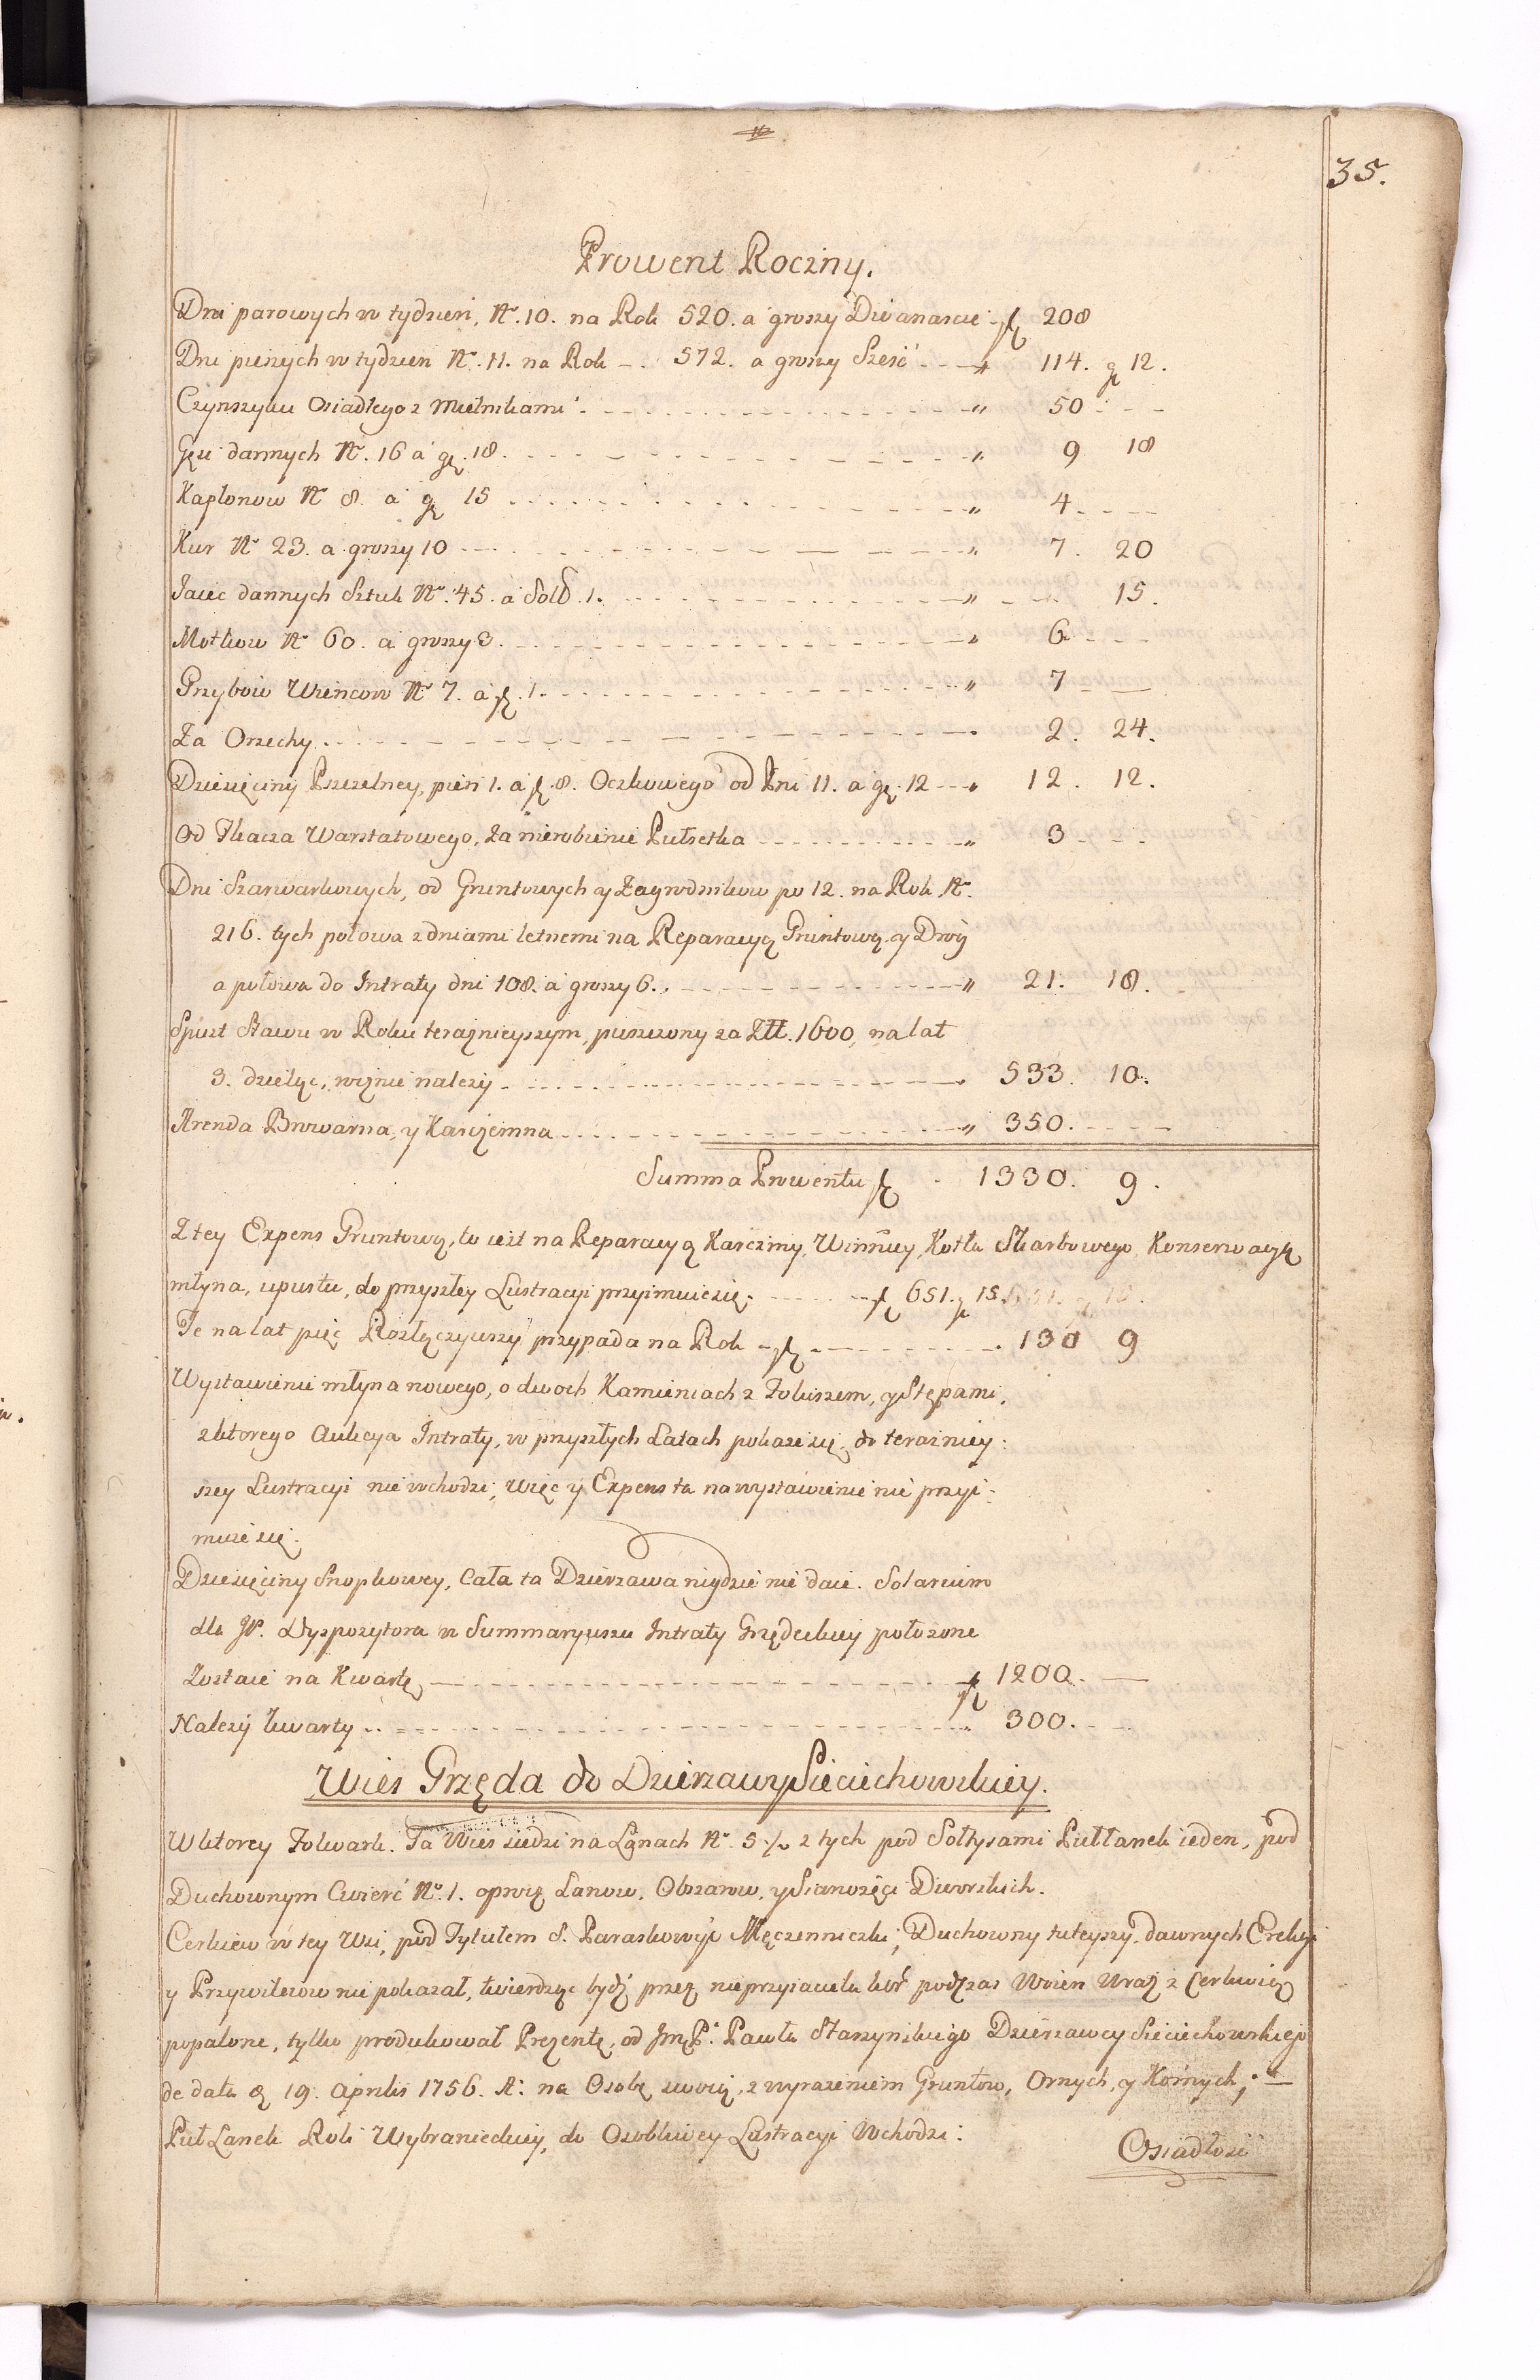 35.
Prowent Roczny.
Dni parowych w tydzień, Nº. 10. na Rok 520. a groszy Dwanascie - fl 208
Dni pieszych w tydzien Nº. 11. na Rok - . 572. a groszy Sześć - - - " 114. gr 12.
Czynszyku Osiadłego z Mielnikami - - - " 50 - - -
Gęsi dannych Nº. 16 á gr. 18. - - - " 9 18
Kapłonow Nº 8. á gr 15 - - - " 4. - - -
Kur Nº 23. a groszy 10 - - - " 7. 20
Jaiec dannych Sztuk Nº. 45. á Sold. 1. - - - " - - - 15.
Motkow Nº 60. á groszy 3. - - - " 6 - - -
Grzybów Wiencow Nº 7. á fl. 1. - - - " 7 - -
Za Orzechy - - - 2. 24.
Dziesięciny Pszczelney, pień 1. a fl. 8. Oczkowego od Pni 11. a gr. 12 - - " 12. 12.
Od Tkacza Warstatowego, za nierobienie Pułsetka - - - " 3 - - -
Dni Szarwarkowych, od Gruntowych y Zagrodnikow po 12. na Rok Nº.
216. tych połowa z dniami letnemi na Reparacyą Gruntową y Dróg
a połowa do Intraty dni 108. á groszy 6. - - - " 21. 18.
Spust Stawu w Roku teraznieyszym, puszczony za Złł. 1600, na lat
3. dzieląc, więnie nalezy - - - 533. 10.
Arenda Browarna, y Karczemna - - - " 350. - - -
Summa Prowentu fl - 1330. 9.
Z tey Expens Gruntową, to iest na Reparacyą Karczmy, Winnicy, Kotła Skarbowego, Konserwacyą
młyna, upustu, do przyszłey Lustracyi przyimuie się. - - - fl 651. gr 15.
Te na lat pięć Rozłączywszy przypada na Rok - fl - - - 130 9
Wystawienie młyna nowego, o dwoch Kamieniach z Foluszem, y Stępami,
z ktorego Aukcya Intraty, w przyszłych Latach pokaże się, do terazniey:
szey Lustracyi nie wchodzi, Więc y Expens ta na wystawienie nie przyi:
muie się.
Dziesięciny Snopkowey, Cała ta Dzierzawa nigdzie nie daie. Solarium
dla JP. Dyspozytora w Summaryuszu Intraty Grzędeckiey położone
Zostaie na Kwartę - - - fl 1200. -
Nalezy kwarty - - - 300. - -
Wies Grzęda do Dzierzawy Sieciechowskiey.
W ktorey Folwark. Ta Wies siedzi na Łanach Nº. 5 ½ z tych pod Sołtysami Pułłanek ieden, pod
Duchownym Cwierć Nº. 1. oprocz Lanow, Obszarow, y Sianożęci Dworskich.
Cerkiew w tey Wsi, pod Tytułem S. Paraskowyi Męczenniczki; Duchowny tuteyszy dawnych Erekcyi
y Przywileiow nie pokazał, twierdząc bydź przez nieprzyiaciela podczas Woien wraz z Cerkwią
popalone, tylko produkował Prezentę, od JmP. Pawła Starzynskiego Dzierzawcy Sieciechowskiego
de data 19. Aprilis 1756. A: na Osobę swoią, z wyrazeniem Gruntow, Ornych, y Kośnych; -
Puł Łanek Roli Wybranieckiey, do Osobliwey Lustracyi Wchodzi:
Osiadłość